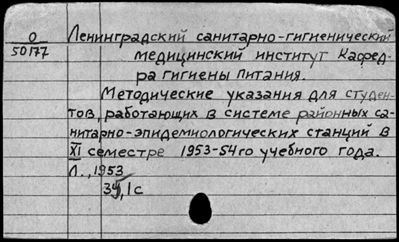 О
50177
Ленинградский санитарно-гигиенический
медицинский институт Кафед-
ра гигиены питания.
Методические указания для студен-
тов, работающих в системе районных са-
нитарно-эпидемиологических станций в
XI семестре 1953-54го учебного года.
Л., 1953
с